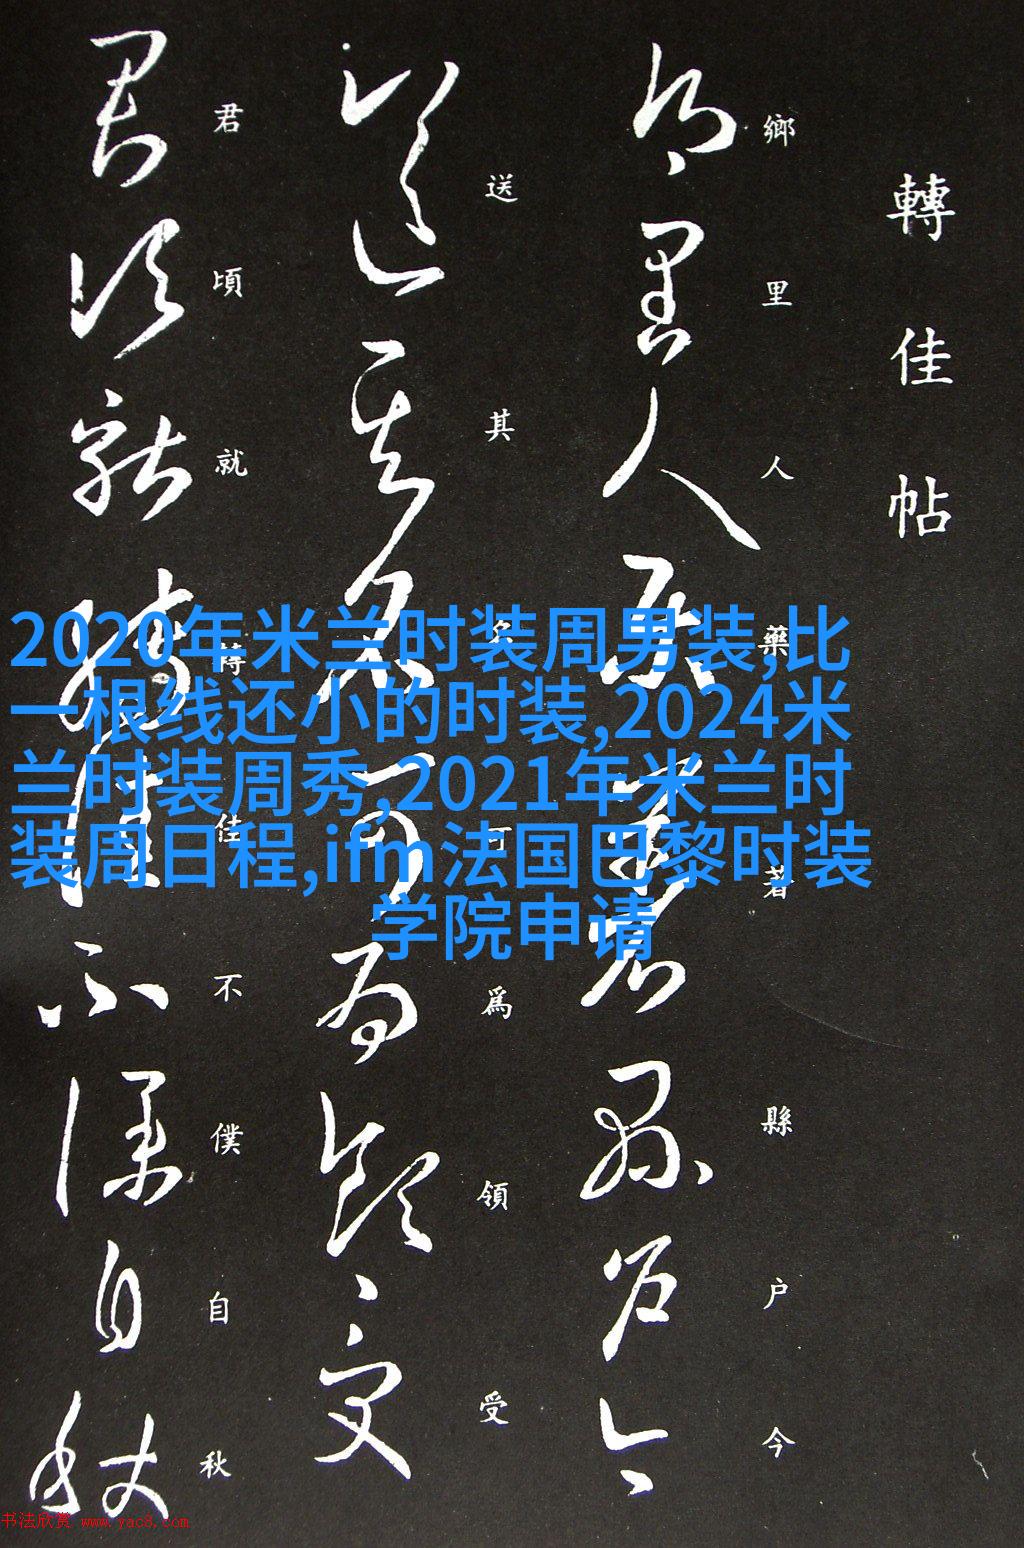 轉佳帖
鄉里人藥著縣户今
送其名可爲領受
君頃就佳不僕自秋
2020年米兰时装周男装,比
一根线还小的时装,2024米
兰时装周秀,2021年米兰时
装周日程,ifm法国巴黎时装
学院申请
书法欣赏 www.yac8.com